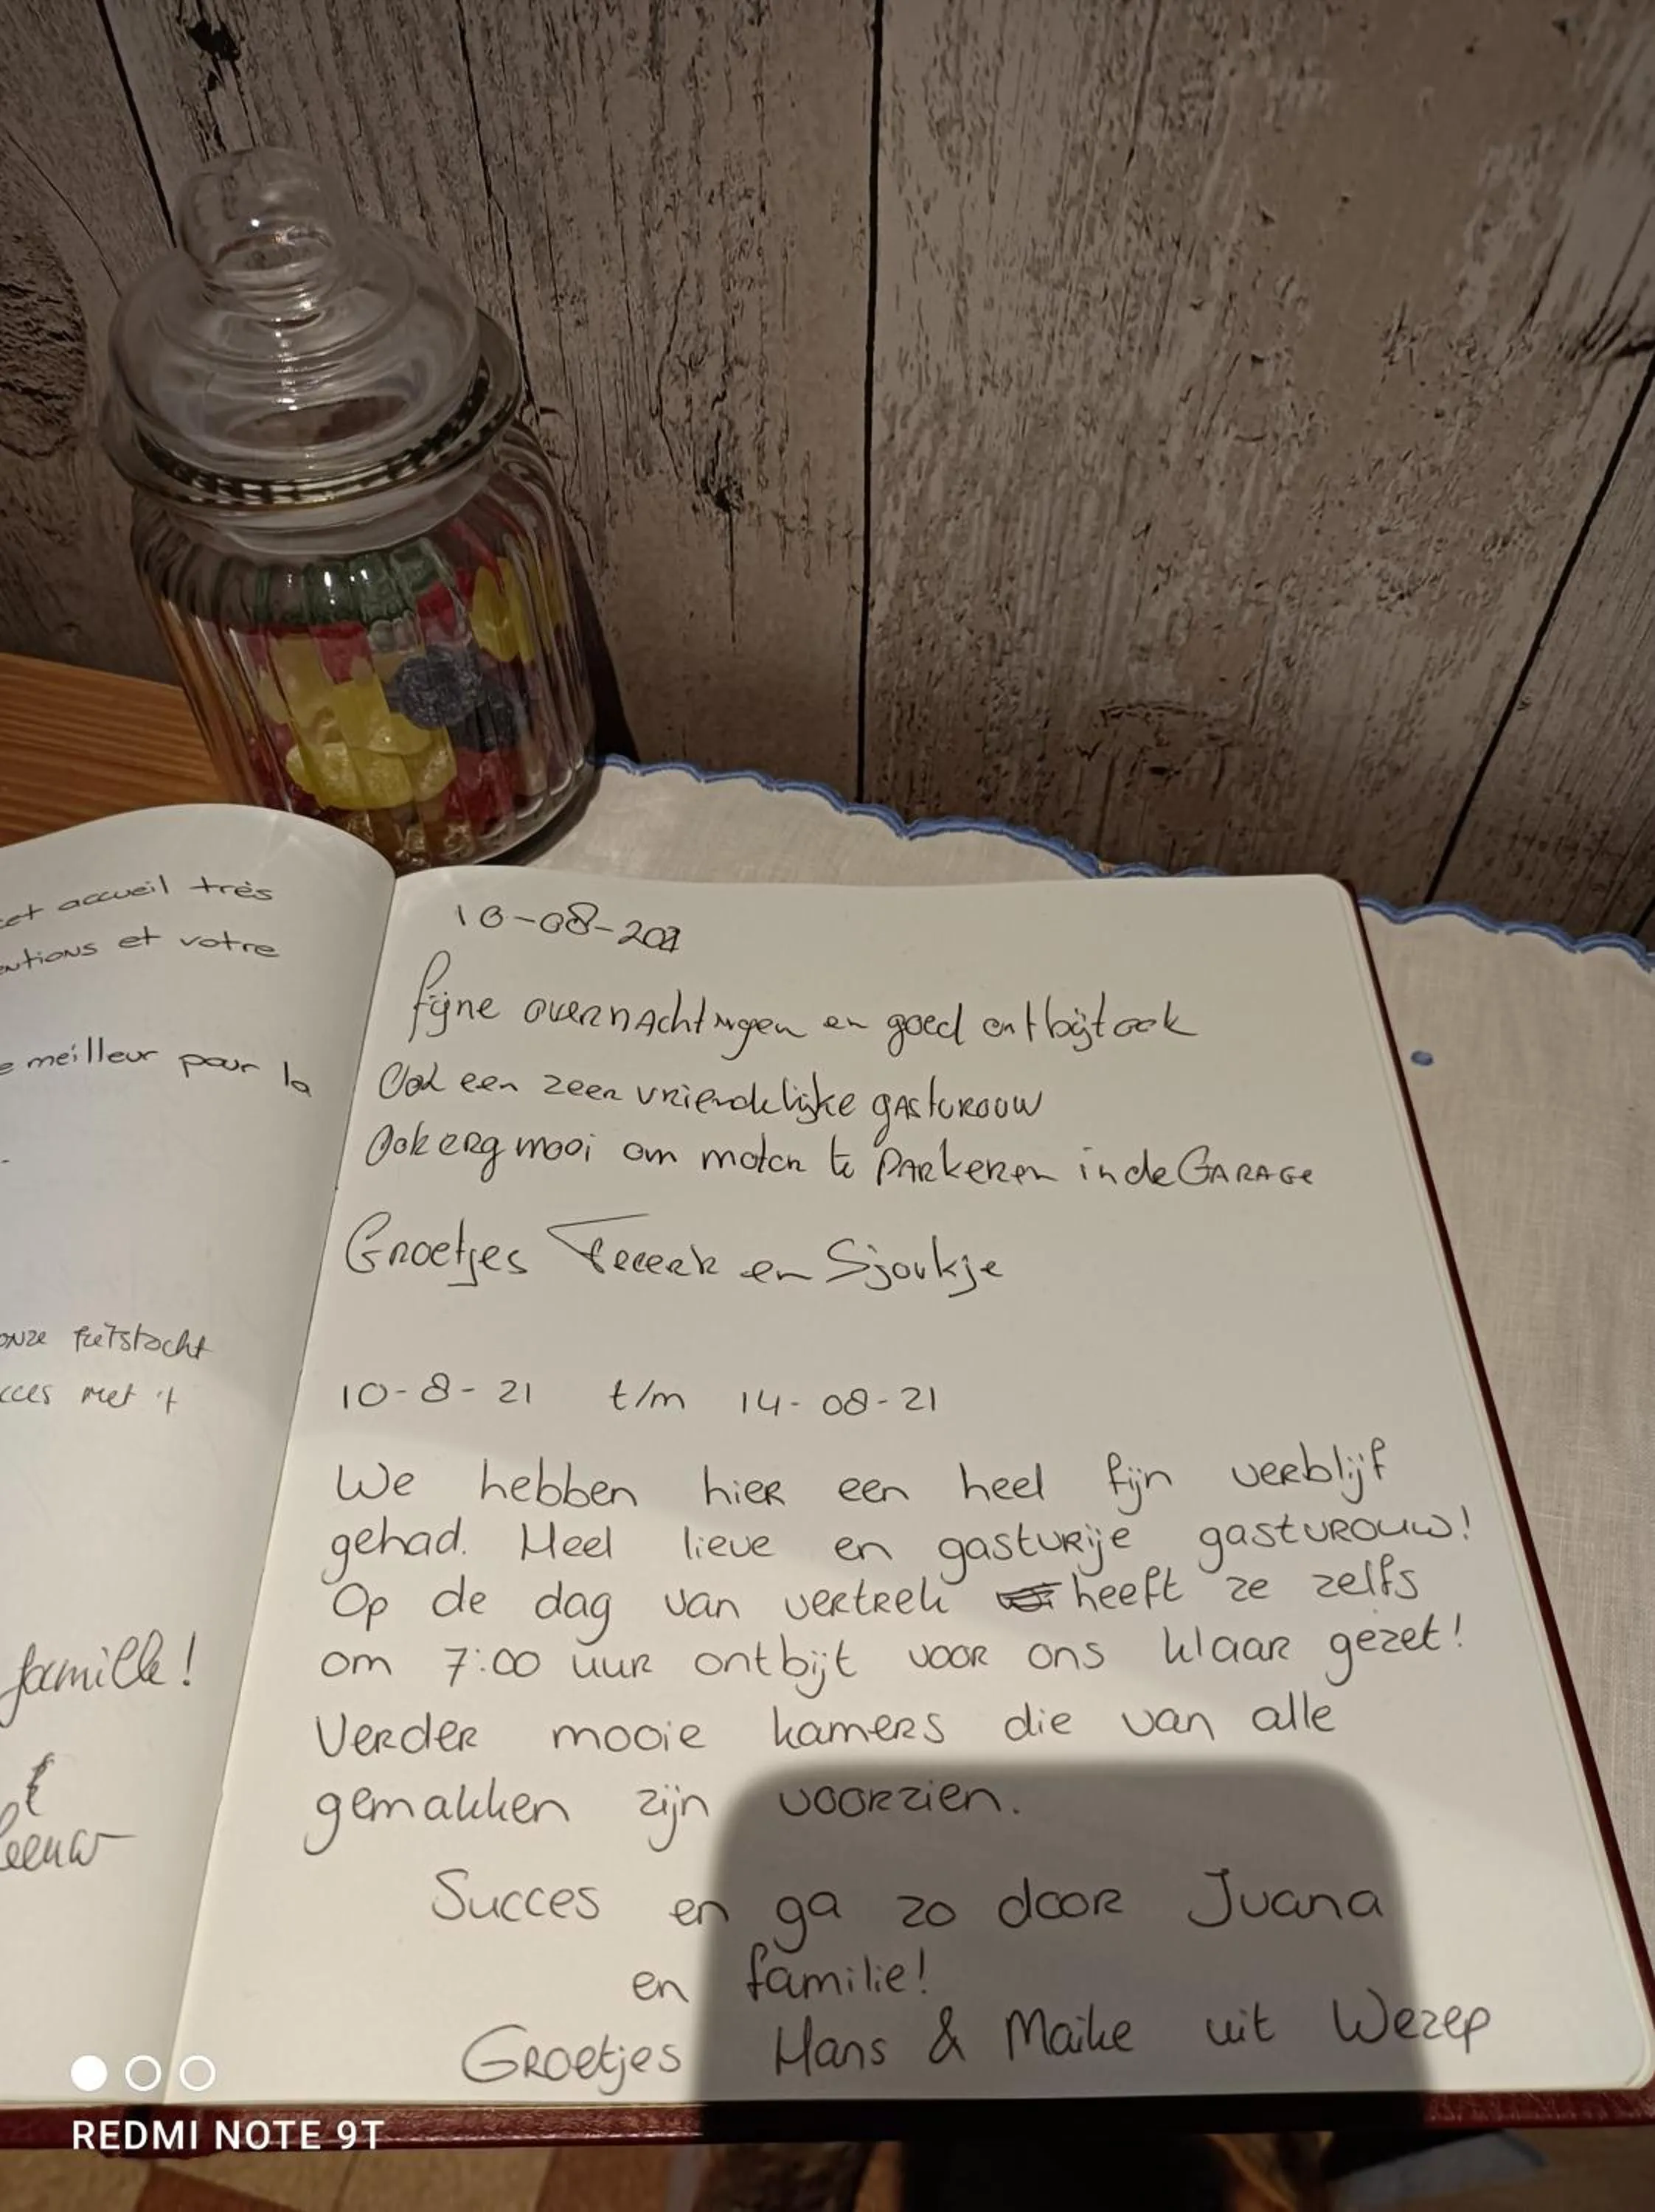 cet accueil très
entions et votre
e meilleur pour la
onze fietstocht
cces met 't
famille!
leeuw
10-08-2021
fijne overnachtingen en goed ontbijt ook
Ook een zeer vriendelijke gastvrouw
Ook erg mooi om motor te PARkeren in de GARAGe
Groetjes en Sjoukje
10-8-21 t/m 14-08-21
We hebben hier een heel fijn verblijf
gehad. Heel lieve en gastvrije gastvrouw!
Op de dag van vertrek heeft ze zelfs
om 7:00 uur ontbijt voor ons klaar gezet!
Verder mooie kamers die van alle
gemakken zijn voorzien.
Succes en ga zo door Juana
en familie!
Groetjes Hans & Maike uit Wezep
REDMI NOTE 9T